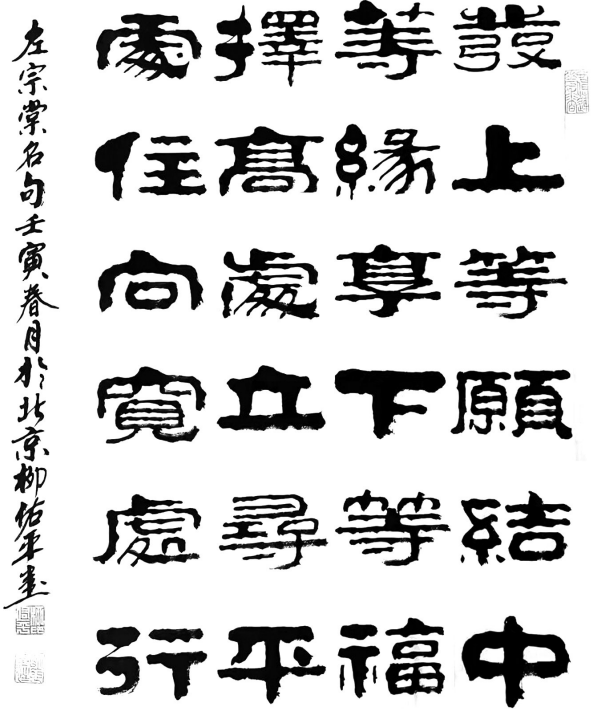 發上等願結中
等緣享下等福
擇高處立尋平
處住向寬處行
左宗棠名句壬寅春月於北京柳佑平書